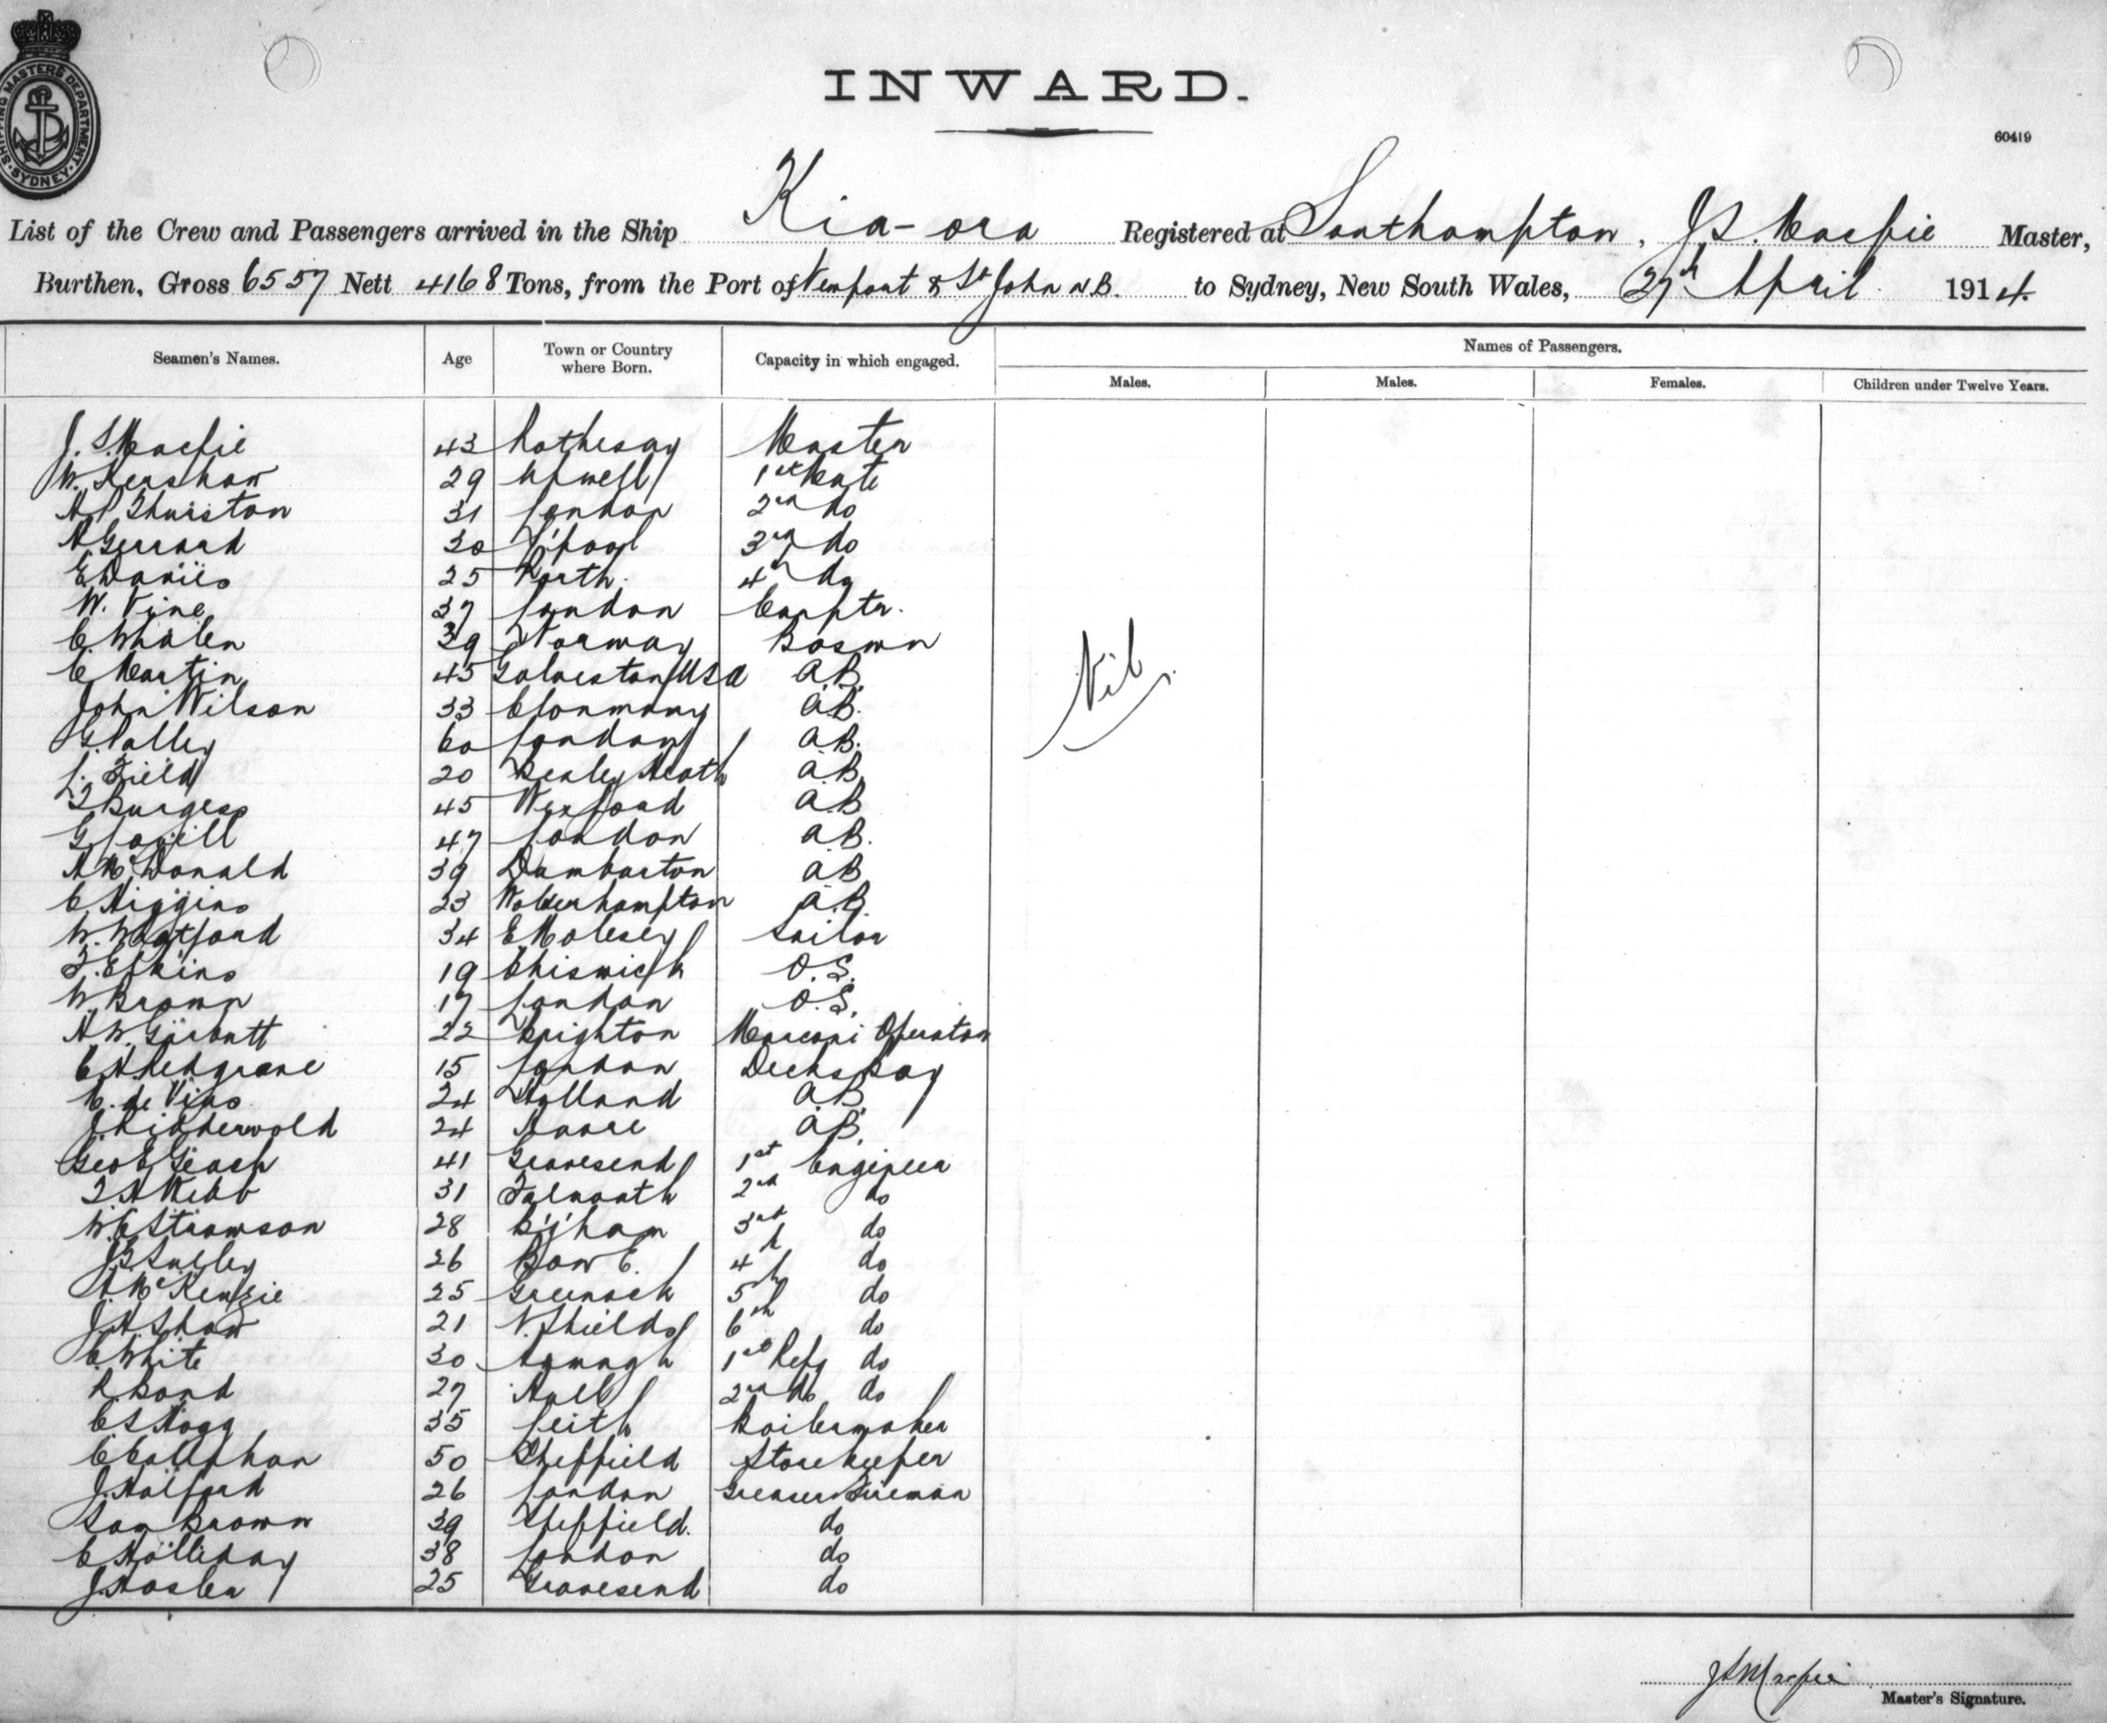 SHIPPING MASTERS DEPARTMENT. SYDNEY.
INWARD.
60419
List of the Crew and Passengers arrived in the Ship Kia-ora Registered at Southampton, J.S. Macfie Master,
Burthen, Gross 6557 Nett 4168 Tons, from the Port of Newport & St John N.B. to Sydney, New South Wales, 27th April 1914.
Seamen's Names. Age Town or Country where Born. Capacity in which engaged. Names of Passengers.
Males. Males. Females. Children under Twelve Years.
J. S. Macfie 43 Rothesay Master
W. Kershaw 29 Upwell 1st Mate
A P Thurston 31 London 2nd do
A Gerrard 30 L'pool 3rd do
E Davies 25 4th do
W. Vine 37 London Carptr.
C. Whalen 39 Norway Boswn
C Martin 45 Galveston USA A.B.
John Wilson 33 Clonmany A.B.
G. Palley 60 London A.B.
L. Field 20 Bexley Heath A.B.
T Burgess 45 Wexford A.B.
G. Lovell 47 London A.B.
A McDonald 39 Dumbarton A.B.
C Higgins 23 Wolverhampton A.B.
W. Whatford 34 E. Molesey Sailor
19 Chiswick O.S.
W. Brown 17 London O.S.
A. W. Garbutt 22 Brighton Marconi Operator
C A Redgrave 15 London Decks Boy
de Vies 24 Holland A.B.
J. Ridderwold 24 A.B.
Geo E Geach 41 Gravesend 1st Engineer
T A Webb 31 Falmouth 2nd do
W. E Strawson 28 B'ham 3rd do
26 Bow E. 4th do
A. McKenzie 25 Greenock 5th do
J. A. Shaw 21 N. Shields 6th do
C. White 30 Armagh 1st Refg do
R Bond 27 Hull 2nd do do
C S Hogg 35 Leith Boilermaker
C Callaghan 50 Sheffield Storekeeper
J. Halford 26 London Greaser & Fireman
Sam Brown 39 Sheffield. do
C Holliday 38 London do
J. Hosler 25 Gravesend do
Nil
J S Macfie
Master's Signature.